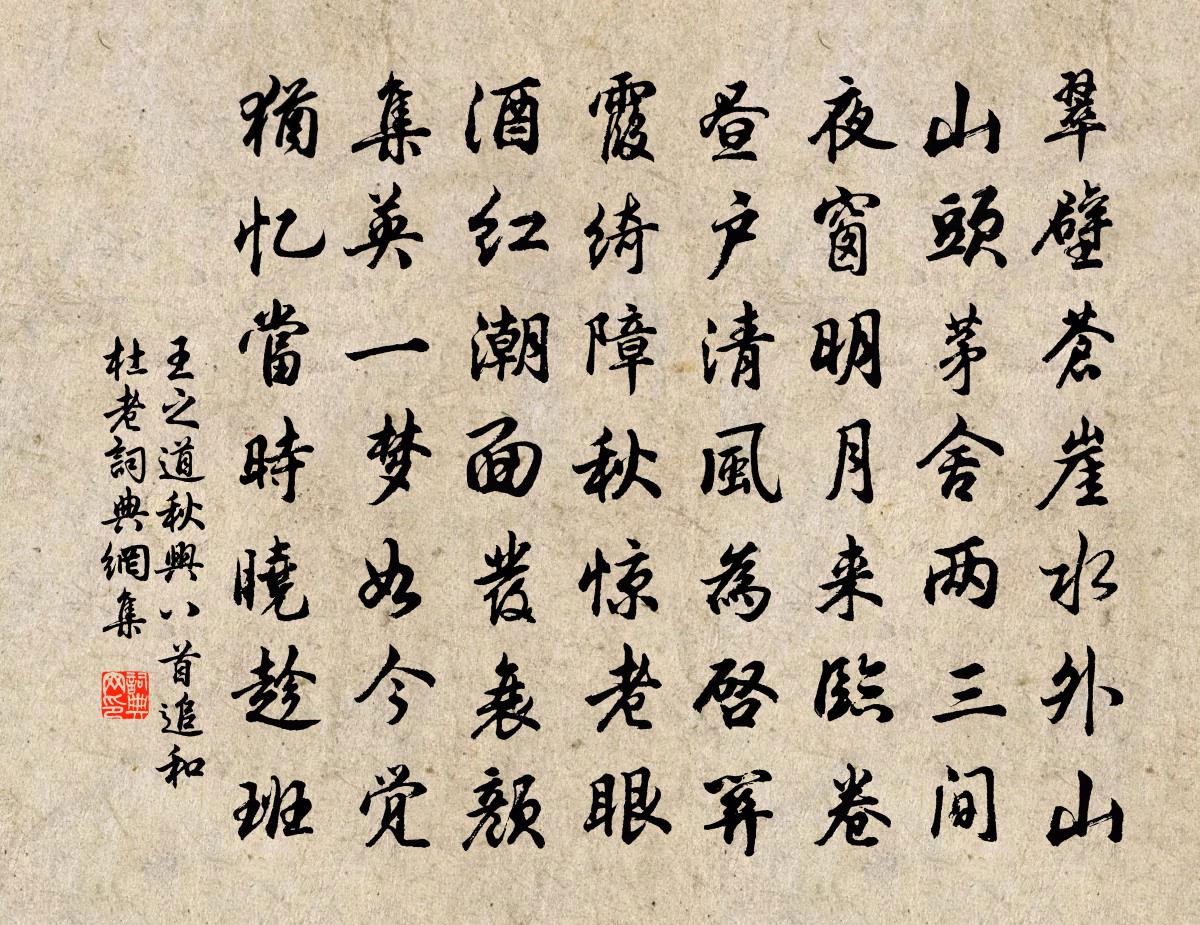 翠壁蒼崖水外山
山頭茅舍兩三間
夜窗明月来臨卷
昼户清風為啓關
霞綺障秋惊老眼
酒红潮面發衰顏
集英一梦如今觉
猶忆當時曉趁班
王之道秋興八首追和
杜老詞典網集
詞典网印